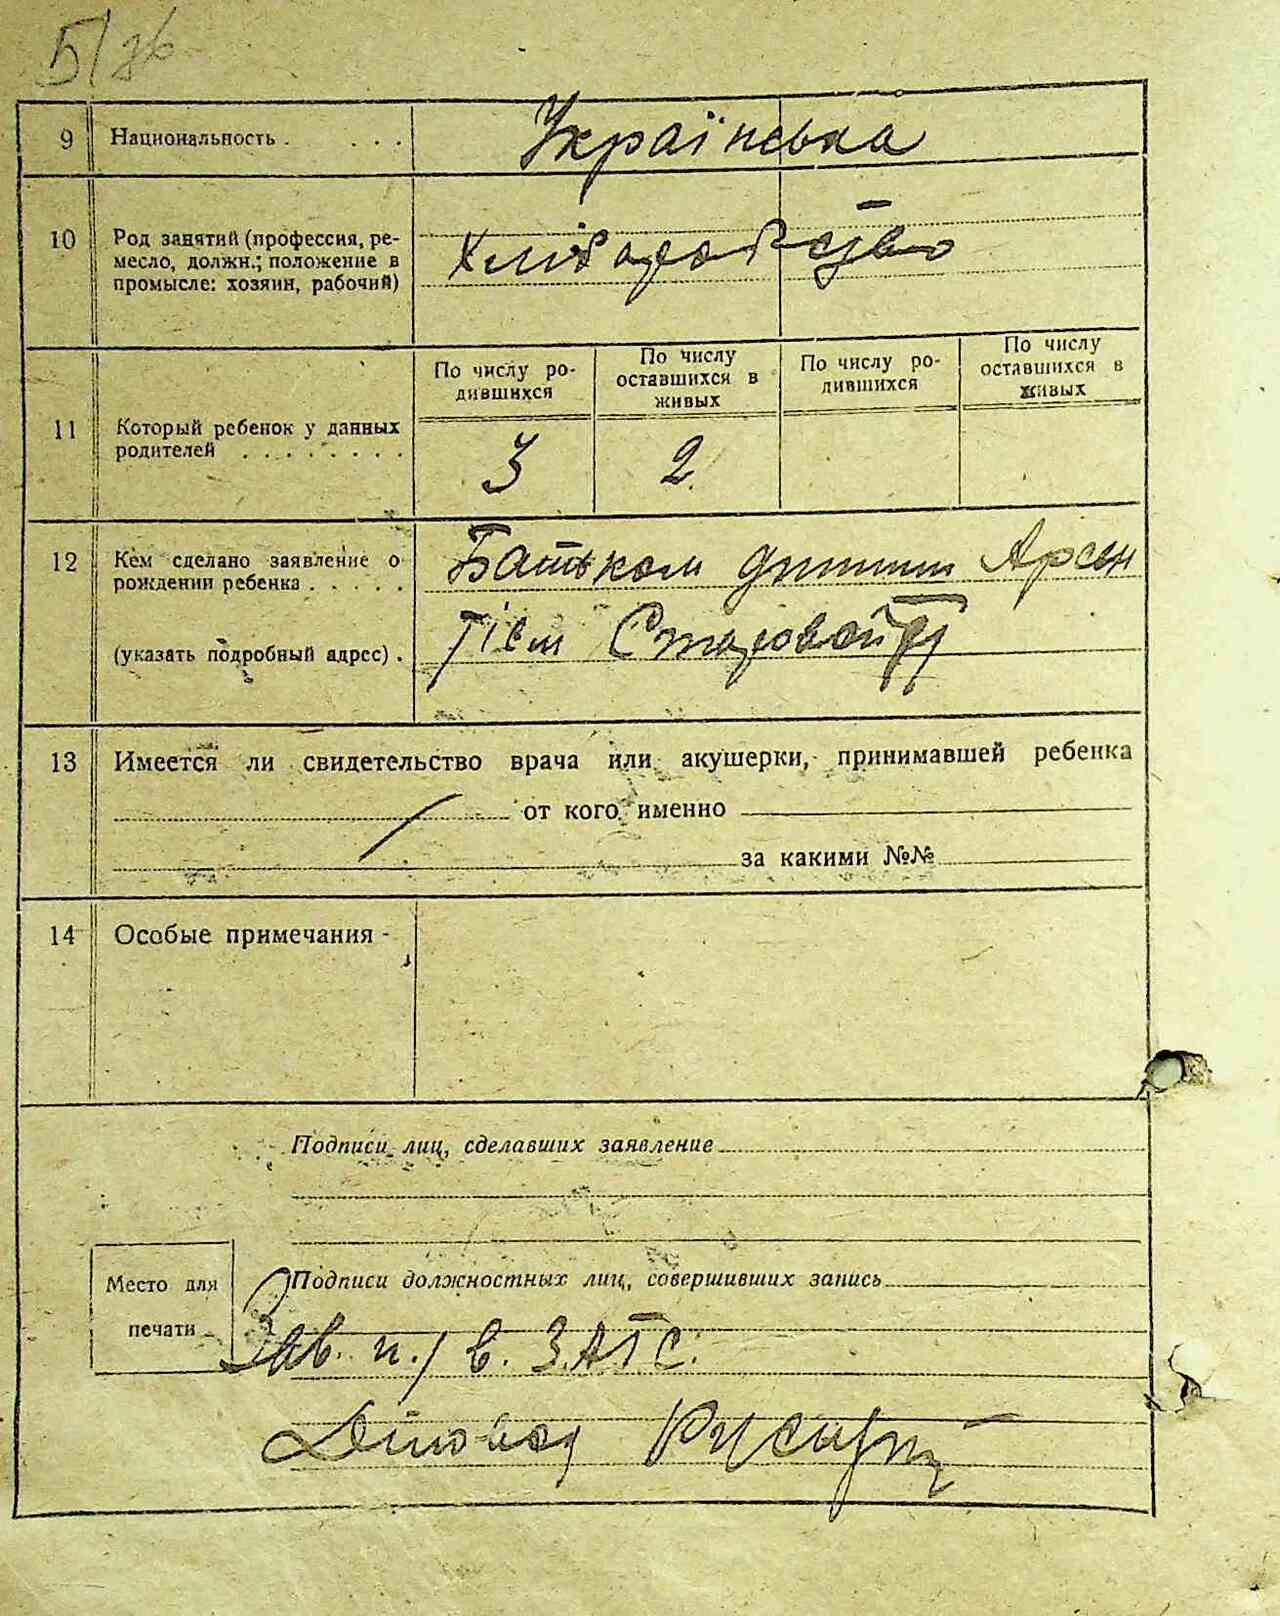 5/зв
9 Национальность . . . . Українська
10 Род занятий (профессия, ре-
месло, должн.; положение в
промысле: хозяин, рабочий)
Хліборобство
11 Который ребенок у данных
родителей . . . . . . . .
По числу ро-
дившихся
По числу
оставшихся в
живых
По числу ро-
дившихся
По числу
оставшихся в
живых
3 2
12 Кем сделано заявление о
рождении ребенка . . . . .
(указать подробный адрес) .
Батьком дитини Арсен
тієм Старовойт
13 Имеется ли свидетельство врача или акушерки, принимавшей ребенка
от кого именно
за какими №№
14 Особые примечания -
Подписи лиц, сделавших заявление
Место для
печати
Подписи должностных лиц, совершивших запись
Зав. п./в. ЗАГС.
Діловод